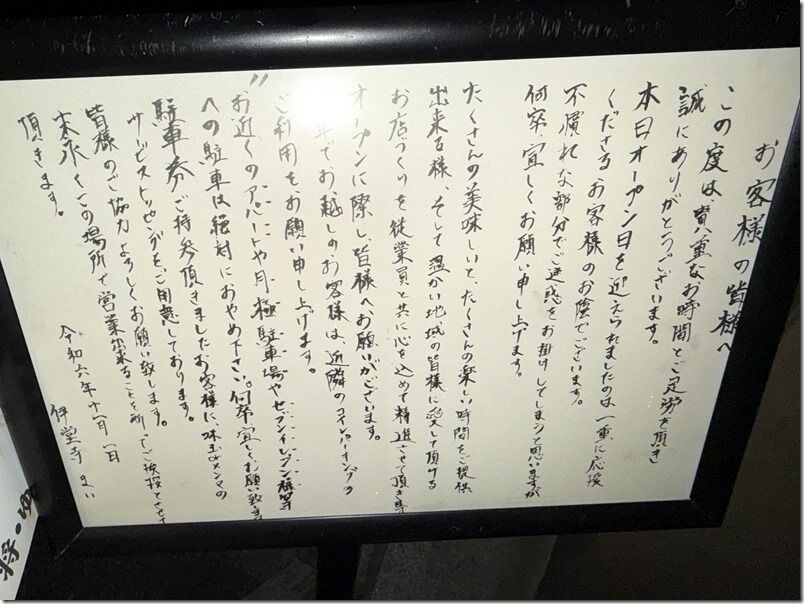 お客様の皆様へ
この度は、貴重なお時間とご足労を頂き
誠にありがとうございます。
本日オープン日を迎えられましたのは一重に応援
くださるお客様のお陰でございます。
不慣れな部分でご迷惑をお掛けしてしまうと思いますが
何卒、宜しくお願い申し上げます。
たくさんの美味しいと、たくさんの楽しい時間をご提供
出来る様、そして温かい地域の皆様に愛して頂ける
お店づくりを従業員と共に心を込めて精進させて頂きます
オープンに際し、皆様へお願いがございます。
車でお越しのお客様は、近隣のコインパーキングの
ご利用をお願い申し上げます。
お近くのアパートや月極駐車場やセブンイレブン様等
への駐車は絶対におやめ下さい。何卒宜しくお願い致します
駐車券ご持参頂きましたお客様に味玉orメンマの
サービストッピングをご用意しております。
皆様のご協力よろしくお願い致します。
末永くこの場所で営業出来ることを祈ってご挨拶とさせて
頂きます。
令和六年十一月一日